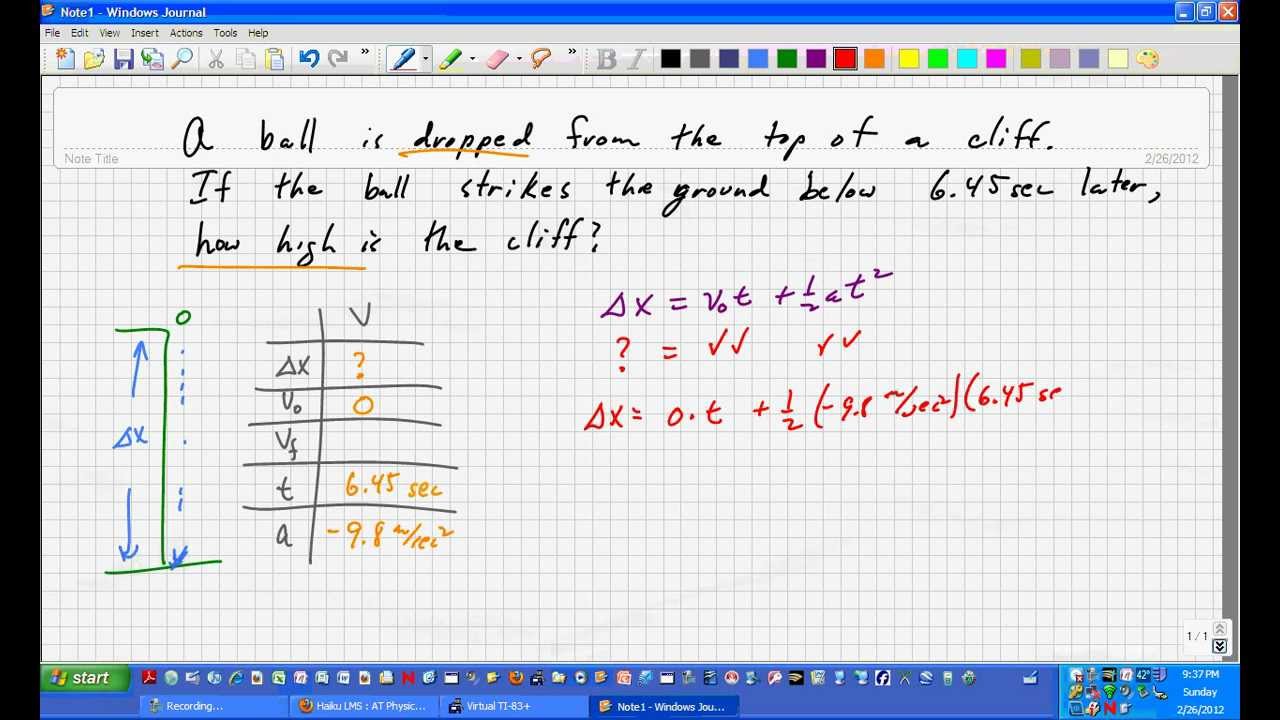 Note1 - Windows Journal
File Edit View Insert Actions Tools Help
A ball is dropped from the top of a cliff.
Note Title
2/26/2012
If the ball strikes the ground below 6.45 sec later,
how high is the cliff?
Δx = v₀t + ½at²
? = ✓✓ ✓✓
Δx = 0·t + ½(-9.8 m/sec²)(6.45 se
Δx
V
Δx ?
V₀ 0
Vf
t 6.45 sec
a -9.8 m/sec²
1 / 1
start
42°
9:37 PM
Sunday
2/26/2012
Recording...
Haiku LMS : AT Physic...
Virtual TI-83+
Note1 - Windows Jou...